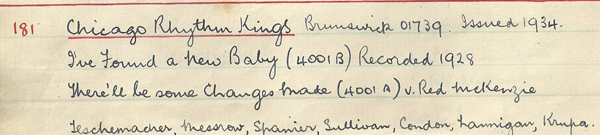 181 Chicago Rhythm Kings Brunswick 01739. Issued 1934.
I've Found a New Baby (4001 B) Recorded 1928
There'll be some Changes made (4001 A) v. Red McKenzie
Teschemacher, Messrow, Spanier, Sullivan, Condon, Lannigan, Krupa.